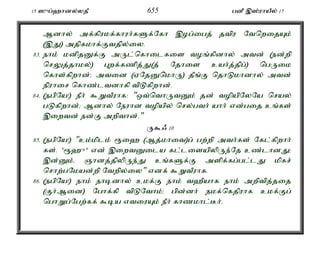 15 ஸுப்ஹானல்லதீ 655 பனீ இஸ்ராயீல் 17
ஆனால் அக்கிரமக்காரர்களுக்கோ இழப்பைத் தவிர வேறெதையும்
(இது) அதிகமாக்குவதில்லை.
83. நாம் மனிதனுக்கு அருட்கொடைகளை வழங்கினால் அவன் (நன்றி
செலுத்தாமல்) புறக்கணித்து(த் தோளை உயர்த்தி)ப் பெருமை
கொள்கிறான்; அவனை (ஏதேனுமொரு) தீங்கு தொடுமானால் அவன்
நிராசை கொண்டவனாகி விடுகிறான்.
84. (நபியே!) நீர் கூறுவீராக: "ஒவ்வொருவனும் தன் வழியிலேயே செயல்
படுகிறான்; ஆனால் நேரான வழியில் செல்பவர் யார் என்பதை உங்கள்
இறைவன் நன்கு அறிவான்."
ருகூஃ 10
85. (நபியே!) "உம்மிடம் ரூஹை (ஆத்மாவை)ப் பற்றி அவர்கள் கேட்கிறார்
கள். 'ரூஹு' என் இறைவனுடைய கட்டளையிலிருந்தே உண்டானது;
இன்னும், ஞானத்திலிருந்து உங்களுக்கு அளிக்கப்பட்டது மிகச்
சொற்பமேயன்றி வேறில்லை" எனக் கூறுவீராக.
86. (நபியே!) நாம் நாடினால் உமக்கு நாம் வஹீயாக நாம் அறிவித்ததை
(குர்ஆனை) போக்கி விடுவோம்; பின்னர் நமக்கெதிராக உமக்குப்
பொறுப்பேற்கக் கூடிய எவரையும் நீர் காணமாட்டீர்.